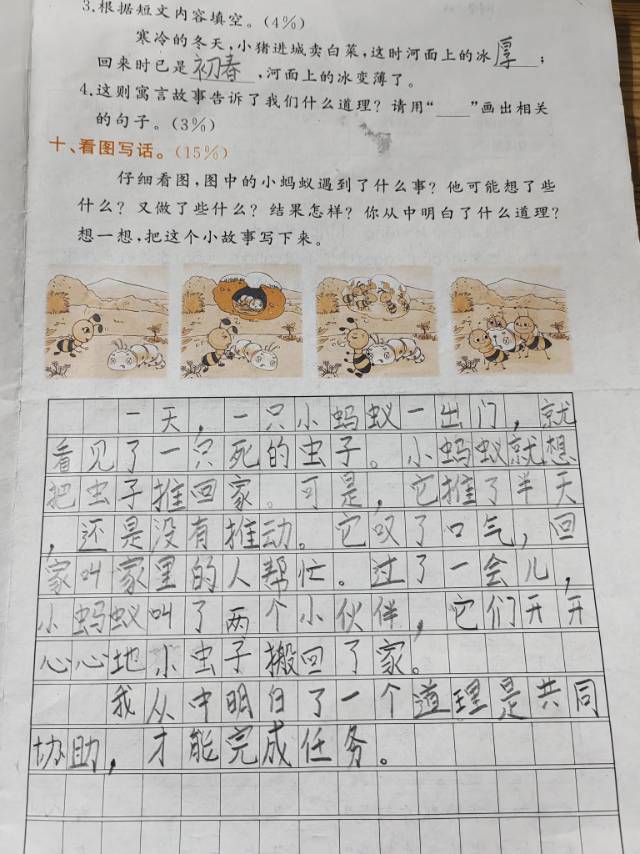 3.根据短文内容填空。(4%)
寒冷的冬天,小猪进城卖白菜,这时河面上的冰厚;
回来时已是初春,河面上的冰变薄了。
4.这则寓言故事告诉了我们什么道理？请用“___”画出相关
的句子。(3%)
十、看图写话。(15%)
仔细看图,图中的小蚂蚁遇到了什么事？他可能想了些
什么？又做了些什么？结果怎样？你从中明白了什么道理？
想一想,把这个小故事写下来。
一天，一只小蚂蚁一出门，就
看见了一只死的虫子。小蚂蚁就想
把虫子推回家。可是，它推了半天
，还是没有推动。它叹了口气，回
家叫家里的人帮忙。过了一会儿，
小蚂蚁叫了两个小伙伴，它们开开
心心地小虫子搬回了家。
我从中明白了一个道理是共同
协助，才能完成任务。